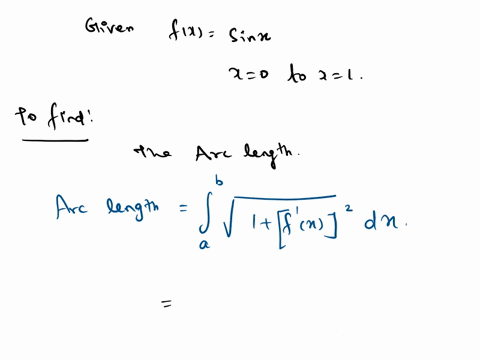 Given f(x) = Sinx
x=0 to x=1.
To find:
The Arc length.
Arc length = ∫_a^b √(1+[f'(x)]² dx.
=